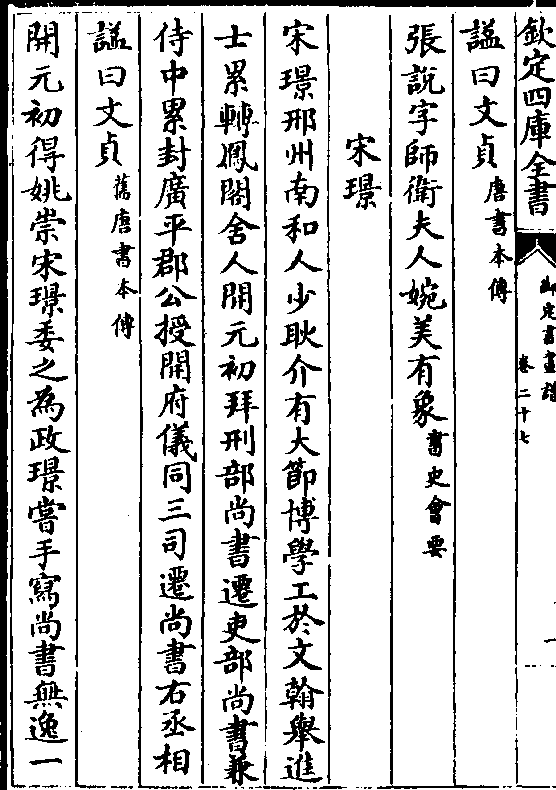 欽定四庫全書
御定書畫譜
卷二十七
謚曰文貞唐書本傳
張說字師衛夫人婉美有象書史會要
宋璟
宋璟邢州南和人少耿介有大節博學工於文翰舉進
士累轉鳳閣舍人開元初拜刑部尚書遷吏部尚書兼
侍中累封廣平郡公授開府儀同三司遷尚書右丞相
謚曰文貞舊唐書本傳
開元初得姚崇宋璟委之為政璟嘗手寫尚書無逸一